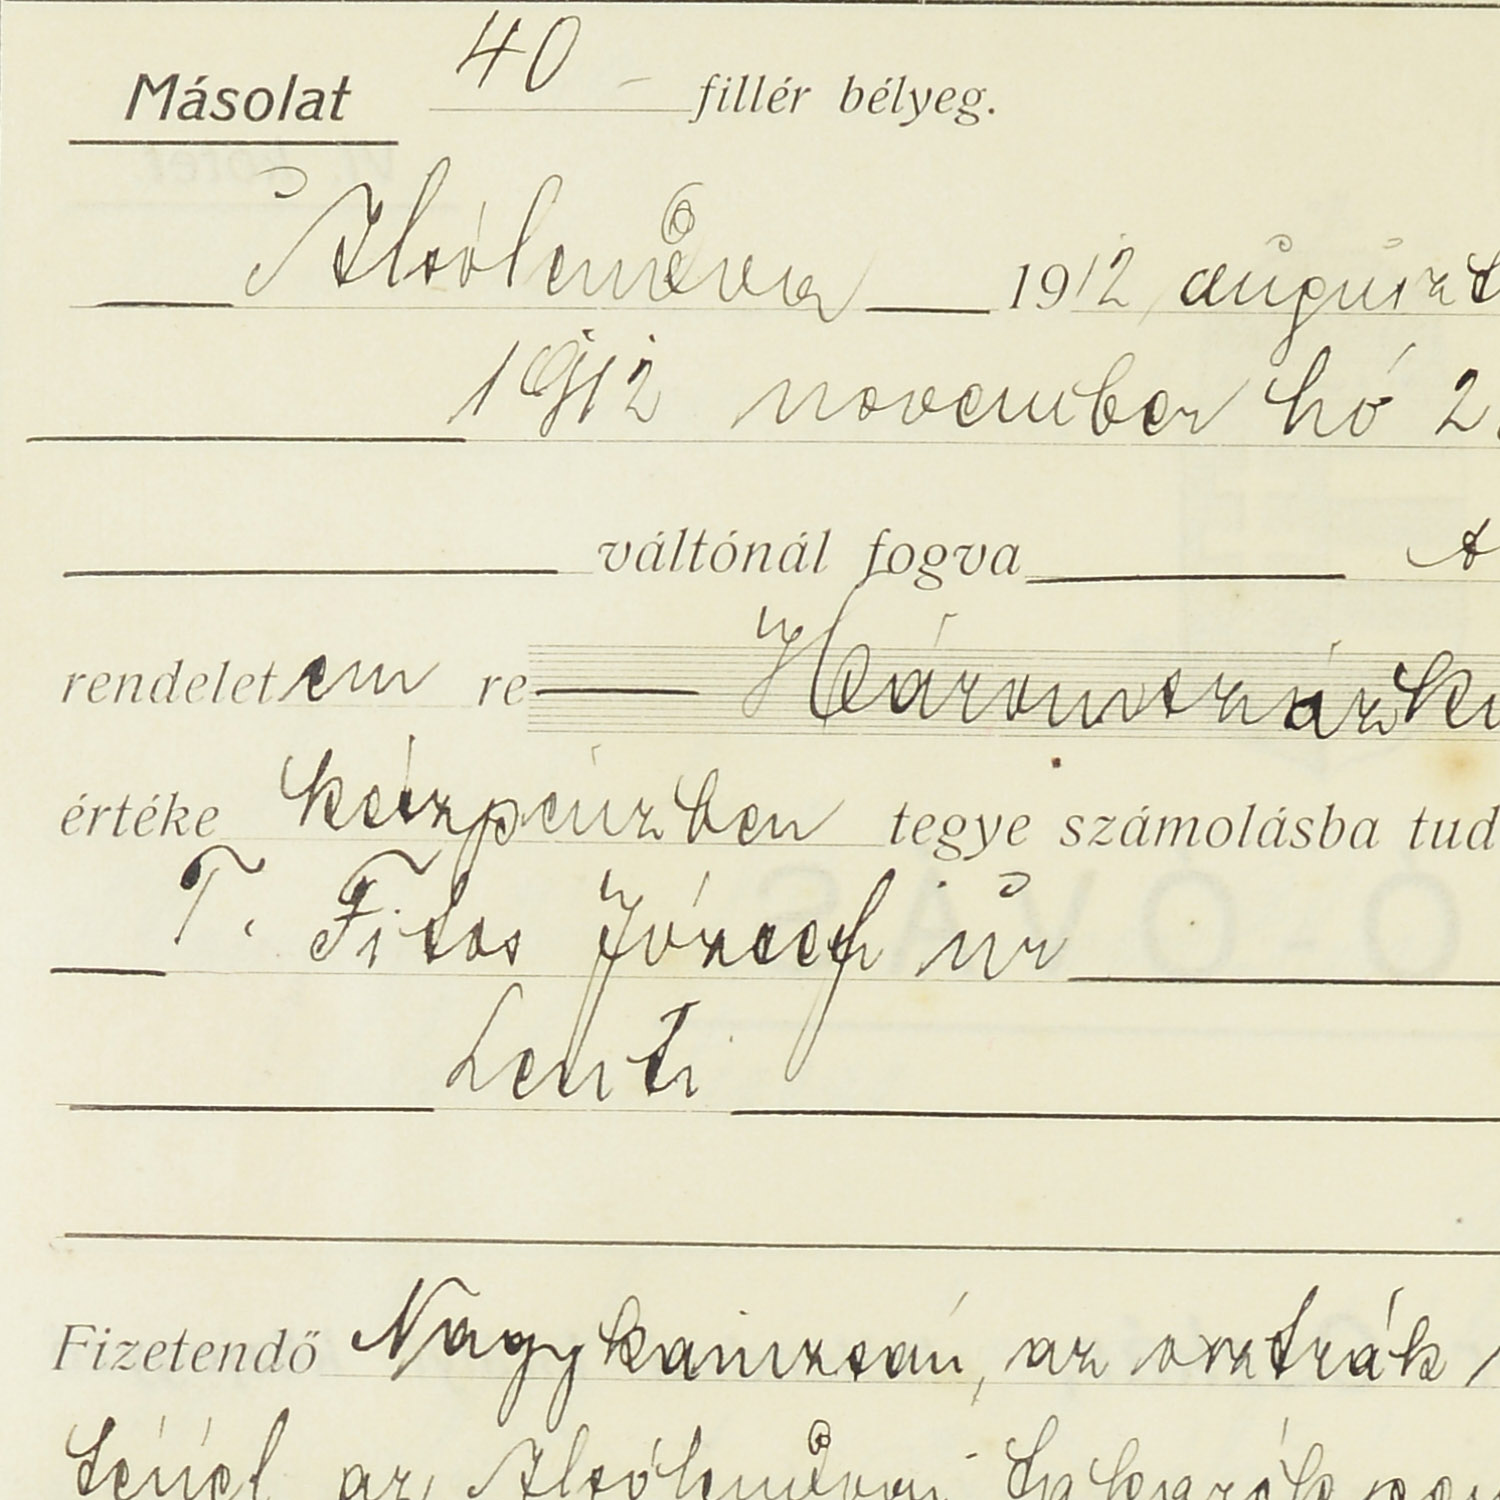 Másolat 40 - fillér bélyeg.
Alsólendva 1912 auguszt
1912 november hó 2
váltónál fogva
rendeletem re Háromszázki
értéke készpénzben tegye számolásba tud
T. Fitos József úr
Lenti
Fizetendő Nagykanizsán, az osztrák
ténél az Alsólendvai Takarék